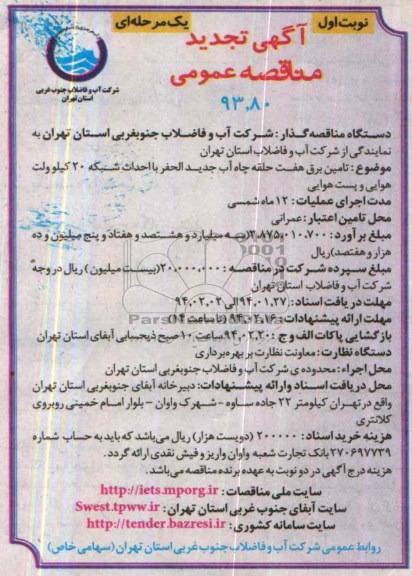 نوبت اول
یک مرحله‌ای
آگهی تجدید
مناقصه عمومی
۹۳.۸۰
شرکت آب و فاضلاب جنوب غربی
استان تهران
دستگاه مناقصه‌گذار: شرکت آب و فاضلاب جنوبغربی استان تهران به
نمایندگی از شرکت آب و فاضلاب استان تهران
موضوع: تامین برق هفت حلقه چاه آب جدید الحفر با احداث شبکه ۲۰ کیلو ولت
هوایی و پست هوایی
مدت اجرای عملیات: ۱۲ ماه شمسی
محل تامین اعتبار: عمرانی
مبلغ برآورد: ۳.۸۷۵.۰۱۰.۷۰۰(سه میلیارد و هشتصد و هفتاد و پنج میلیون و ده
هزار و هفتصد)ریال
مبلغ سپرده شرکت در مناقصه: ۲۰.۰۰۰.۰۰۰(بیست میلیون) ریال در وجه
شرکت آب و فاضلاب استان تهران
مهلت دریافت اسناد: ۹۴.۰۱.۲۷ الی ۹۴.۰۲.۰۲
مهلت ارائه پیشنهادات: ۹۴.۰۲.۱۶ (تا ساعت ۱۴)
بازگشایی پاکات الف و ج: ۹۴.۰۲.۲۰ ساعت ۱۰ صبح ذیحسابی آبفای استان تهران
دستگاه نظارت: معاونت نظارت بر بهره‌برداری
محل اجراء: محدوده‌ی شرکت آب و فاضلاب جنوبغربی استان تهران
محل دریافت اسناد و ارائه پیشنهادات: دبیرخانه آبفای جنوبغربی استان تهران
واقع در تهران کیلومتر ۲۲ جاده ساوه - شهرک واوان - بلوار امام خمینی روبروی
کلانتری
هزینه خرید اسناد: ۲۰۰۰۰۰ (دویست هزار) ریال می‌باشد که باید به حساب شماره
۲۷۰۶۹۷۷۳۹ بانک تجارت شعبه واوان واریز و فیش نقدی ارائه گردد.
هزینه درج آگهی در دو نوبت به عهده برنده مناقصه می‌باشد.
سایت ملی مناقصات: http://iets.mporg.ir
سایت آبفای جنوب غربی استان تهران: Swest.tpww.ir
سایت سامانه کشوری: http://tender.bazresi.ir
روابط عمومی شرکت آب و فاضلاب جنوب غربی استان تهران (سهامی خاص)